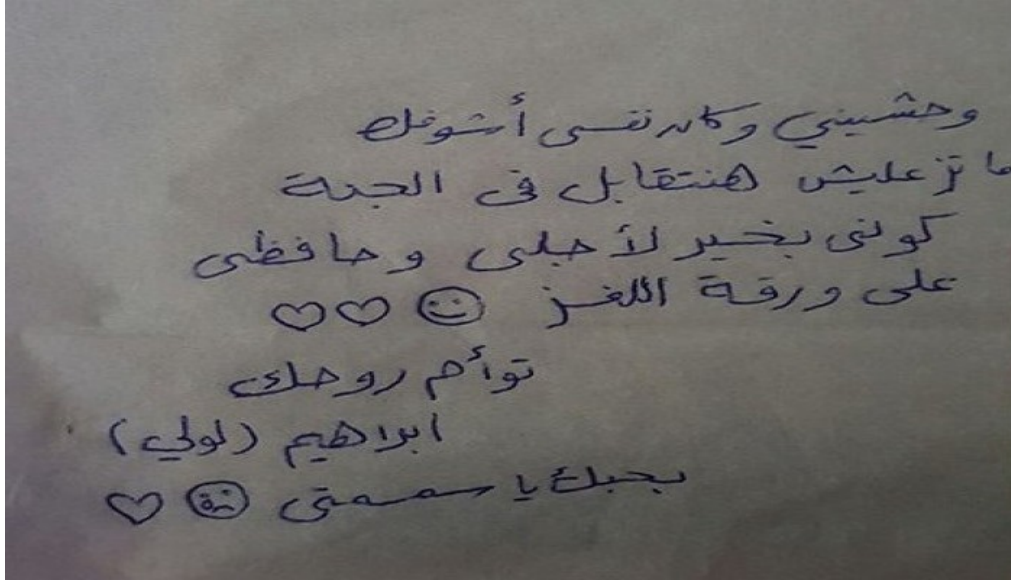 وحشيني وكان نفسى أشوفك
ما تزعليش هنتقابل فى الجنة
كونى بخير لأجلى وحافظى
على ورقة اللغز ☺♡♡
توأم روحك
ابراهيم (لولي)
بحبك يا سمسمتى ☹♡